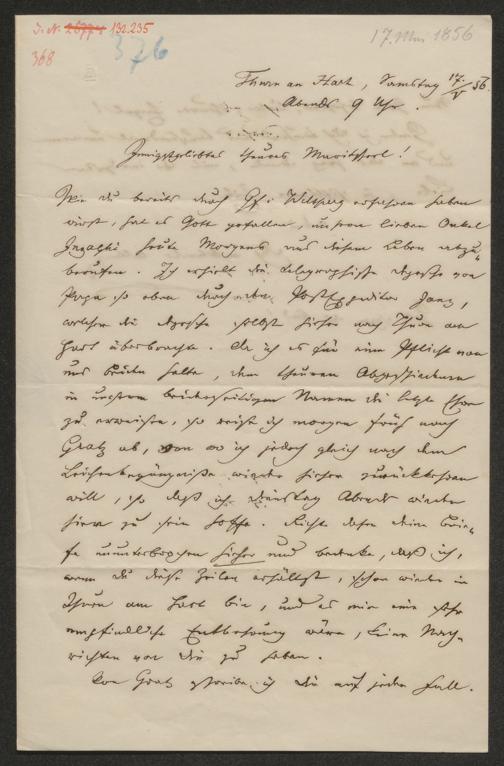 I. N. 132.235
17. Mai 1856
376
368
Thurn am Hart, Samstag 17/V 56.
Abends 9 Uhr.
Innigstgeliebtes theures Marieserl!
Wie du bereits durch Gf: Welsperg erfahren haben
wirst, hat es Gott gefallen, unseren lieben Onkel
heute Morgens aus diesem Leben abzu-
berufen. Ich erhielt die telegraphische Depesche von
Papa so eben durch den Postexpeditor Janz,
welcher die Depesche selbst hieher nach Thurn am
Hart überbrachte. Da ich es für eine Pflicht von
uns beiden halte, dem theuren Abgeschiedenen
in unserem beiderseitigen Namen die letzte Ehre
zu erweisen, so reise ich morgen früh nach
Gratz ab, von wo ich jedoch gleich nach dem
Leichenbegängnisse wieder hieher zurückkehren
will, so daß ich Dienstag Abends wieder
hier zu sein hoffe. Richte daher deine Brie-
fe ununterbrochen hieher und bedenke, daß ich,
wenn du diese Zeilen erhältst, schon wieder in
Thurn am Hart bin, und es mir eine sehr
empfindliche Entbehrung wäre, keine Nach-
richten von dir zu haben.
Von Gratz schreibe ich dir auf jeden Fall.